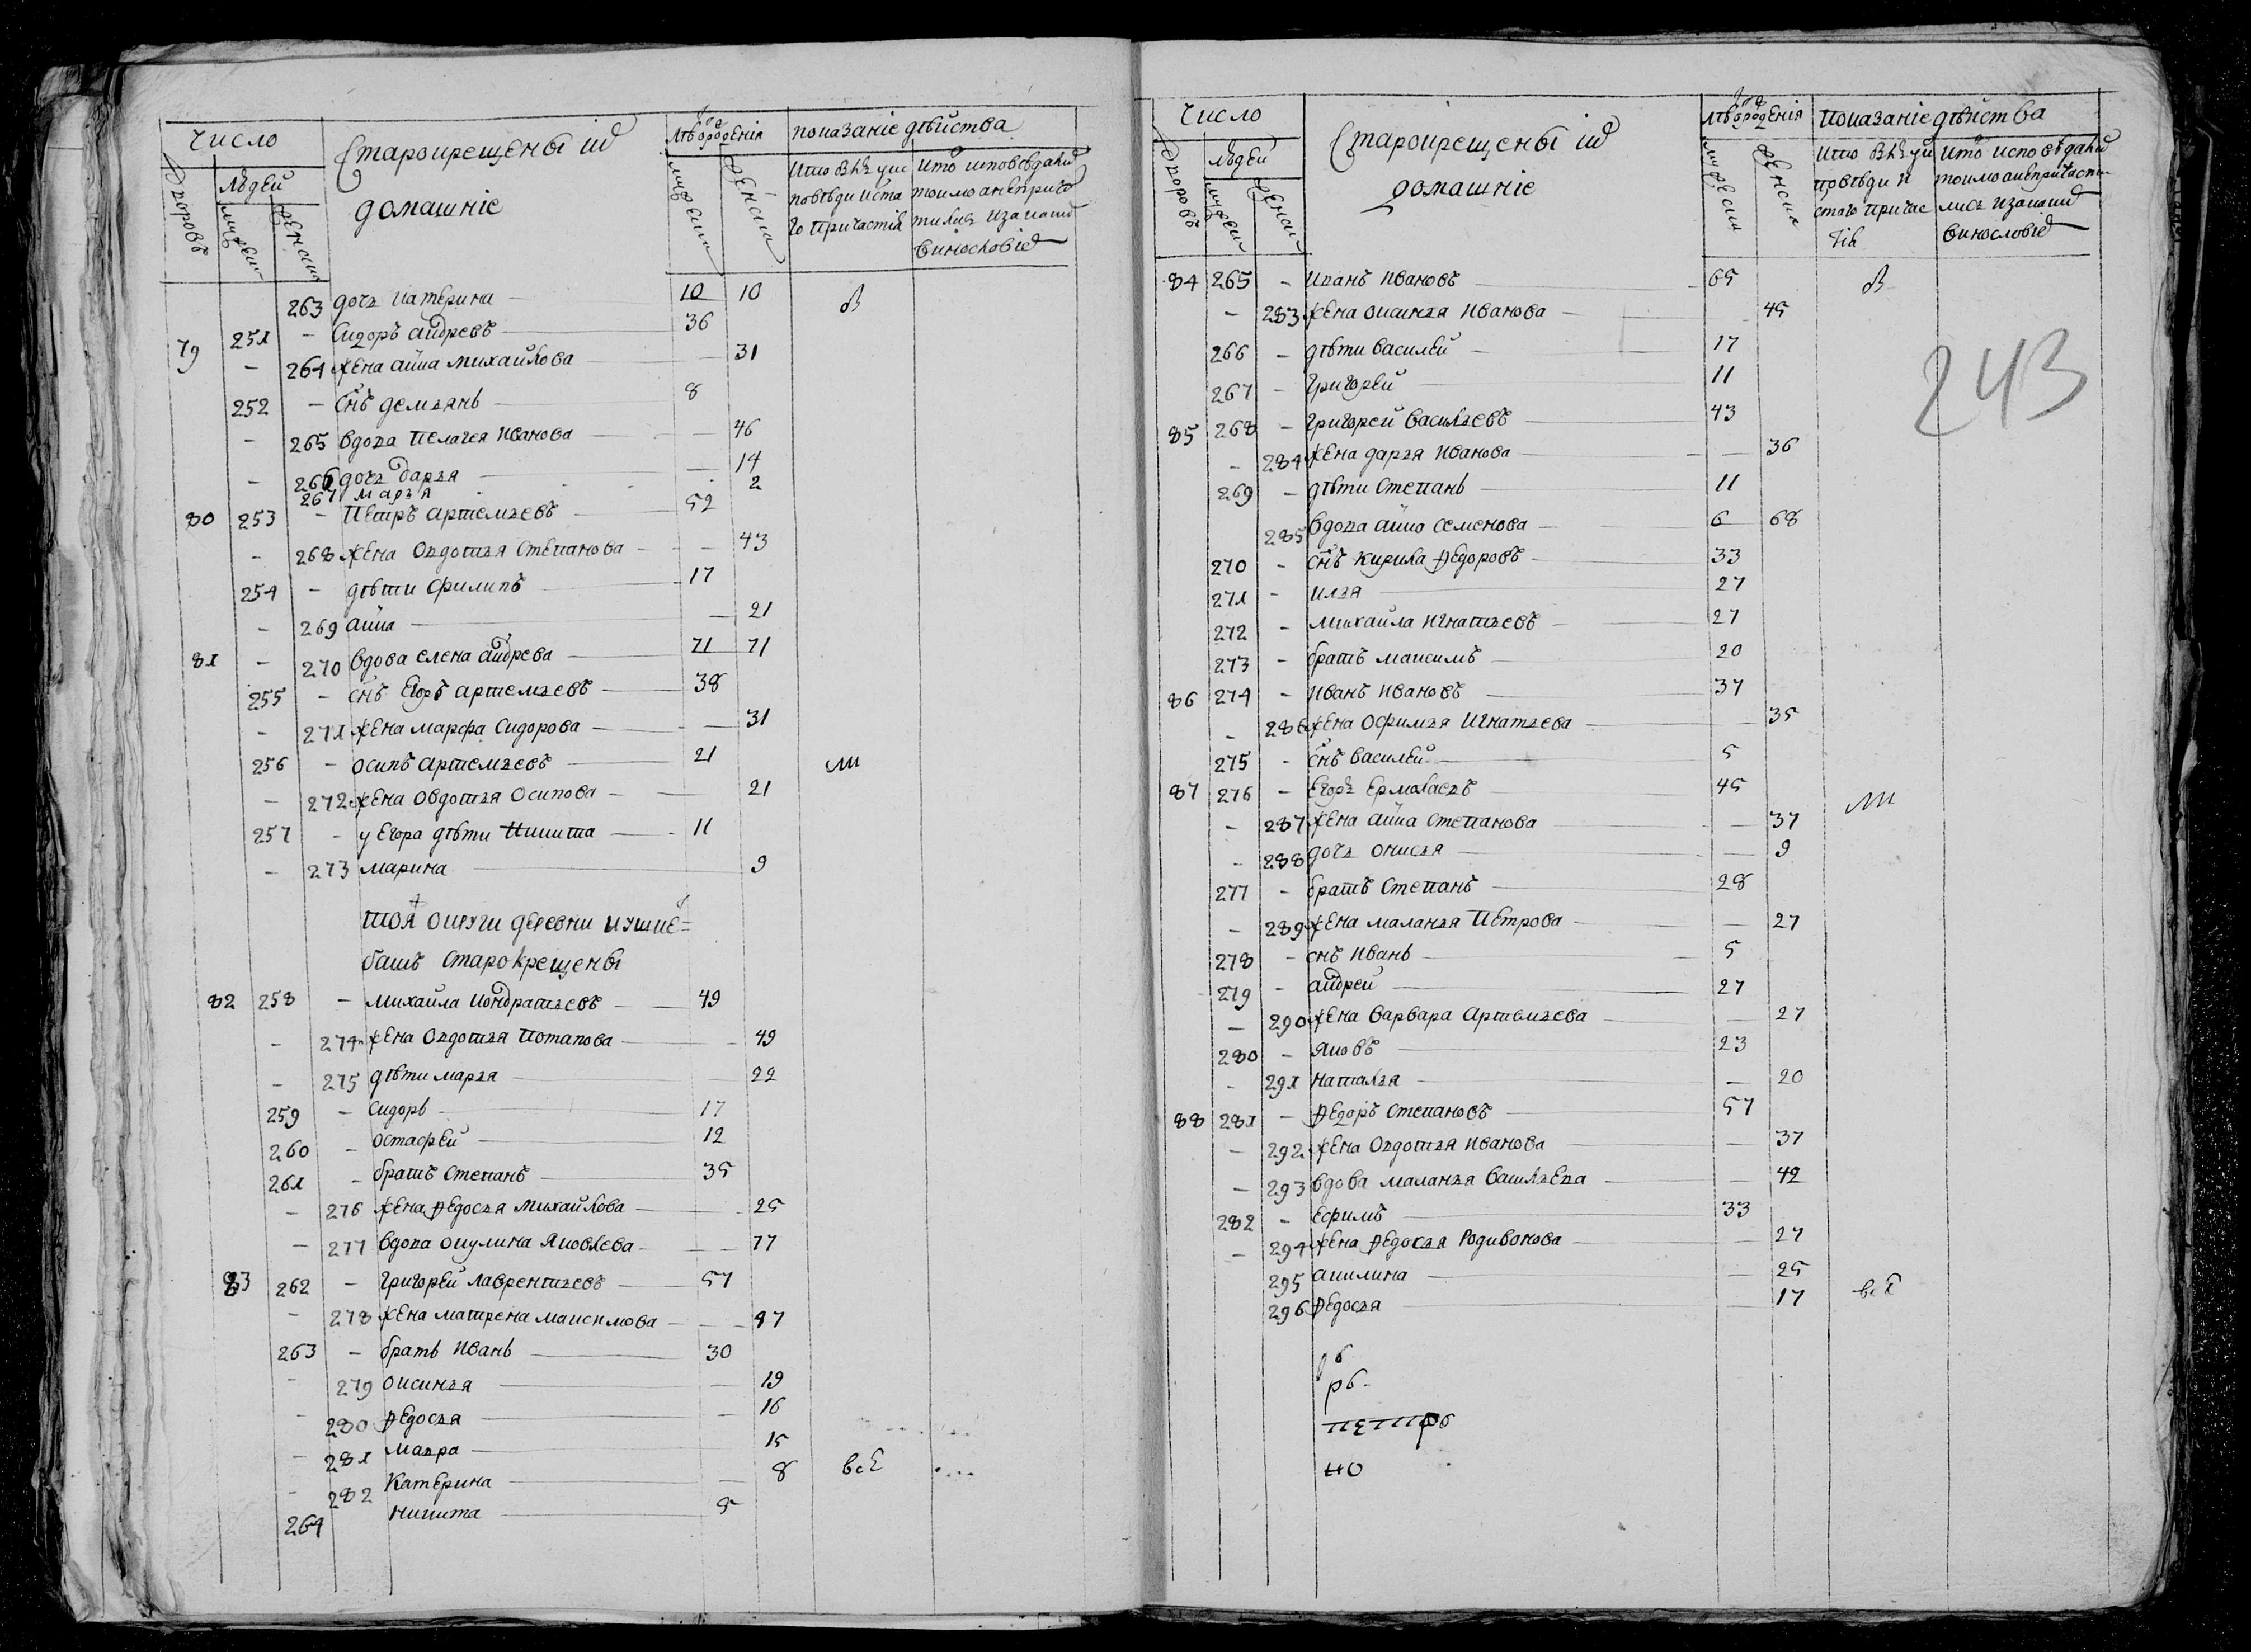 Число
людей
Старокрещены и их
домашніе
Лѣта от рожденія
показаніе дѣйства
дворовъ
мужеск
женска
мужеска
женска
263 дочь катерина 10 10
79 251 - Сидоръ андреевъ 36
- 264 жена анна михайлова - 31
252 - снъ демьянъ 8
- 265 вдова пелагея иванова - 46
- 266 дочь дарья - 14
267 марья 2
80 253 - петръ артемьевъ 52
- 268 жена овдотья степанова - 43
254 - дѣти филипъ 17
- 269 анна - 21
81 - 270 вдова елена андреева 71 71
255 - снъ егоръ артемьевъ 38
- 271 жена марфа сидорова - 31
256 - осипъ артемьевъ 21
- 272 жена овдотья осипова - 21
257 - у егора дѣти никита 11
- 273 марина 9
той округи деревни
башъ старокрещены
82 258 - михайла кондратьевъ 49
- 274 жена овдотья потапова - 49
- 275 дѣти марья - 22
259 - сидоръ 17
260 - остафей 12
261 - братъ степанъ 35
- 276 жена федосья михайлова - 25
- 277 вдова окулина яковлева - 77
83 262 - григорей лаврентьевъ 57
- 278 жена матрена максимова - 47
263 - братъ иванъ 30
- 279 оксинья - 19
- 280 федосья - 16
- 281 мавра 15
- 282 катерина - 8
всѣ
264 никита 5
Число
людей
Старокрещены и их
домашніе
Лѣта от рожденія
показаніе дѣйства
дворовъ
мужеск
женск
мужеска
женска
84 265 - иванъ ивановъ 65
- 283 жена оксинья иванова - 45
266 - дѣти василей 17
267 - григорей 11
243
85 268 - григорей васильевъ 43
- 284 жена дарья иванова - 36
269 - дѣти степанъ 11
285 вдова анна семенова 6 68
270 - снъ кирила федоровъ 33
271 - илья 27
272 - михайла игнатьевъ 27
273 - братъ максимъ 20
86 274 - иванъ ивановъ 37
- 286 жена офимья игнатьева - 35
275 - снъ василей 5
87 276 - егоръ ермолаевъ 45
- 287 жена анна степанова - 37
- 288 дочь онисья - 9
277 - братъ степанъ 28
- 289 жена маланья петрова - 27
278 - снъ иванъ 5
279 - андрей 27
- 290 жена варвара артемьева - 27
280 - яковъ 23
- 291 наталья - 20
88 281 - федоръ степановъ 57
- 292 жена овдотья иванова - 37
- 293 вдова маланья васильева - 42
282 - ефимъ 33
- 294 жена федосья родивонова - 27
295 акилина - 25
всѣ
296 федосья - 17
рб
но